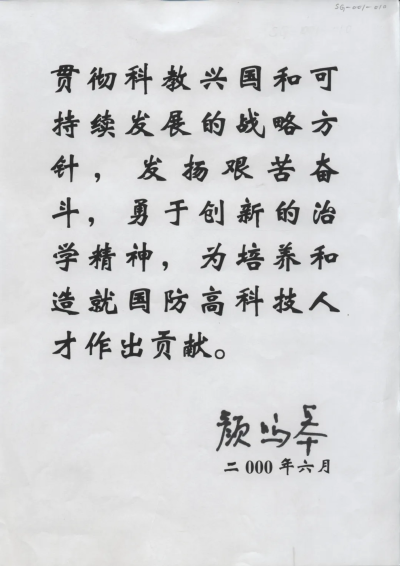 SG-001-010
贯彻科教兴国和可
持续发展的战略方
针，发扬艰苦奋
斗，勇于创新的治
学精神，为培养和
造就国防高科技人
才作出贡献。
颜鸣皋
二000年六月